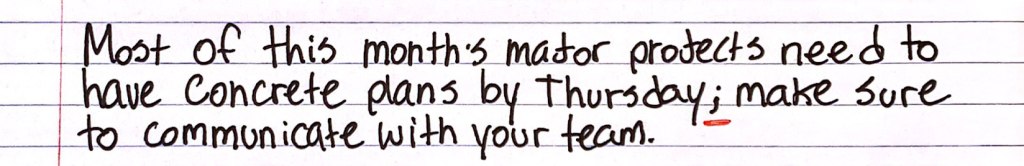 Most of this month's major projects need to
have Concrete plans by Thursday; make sure
to communicate with your team.